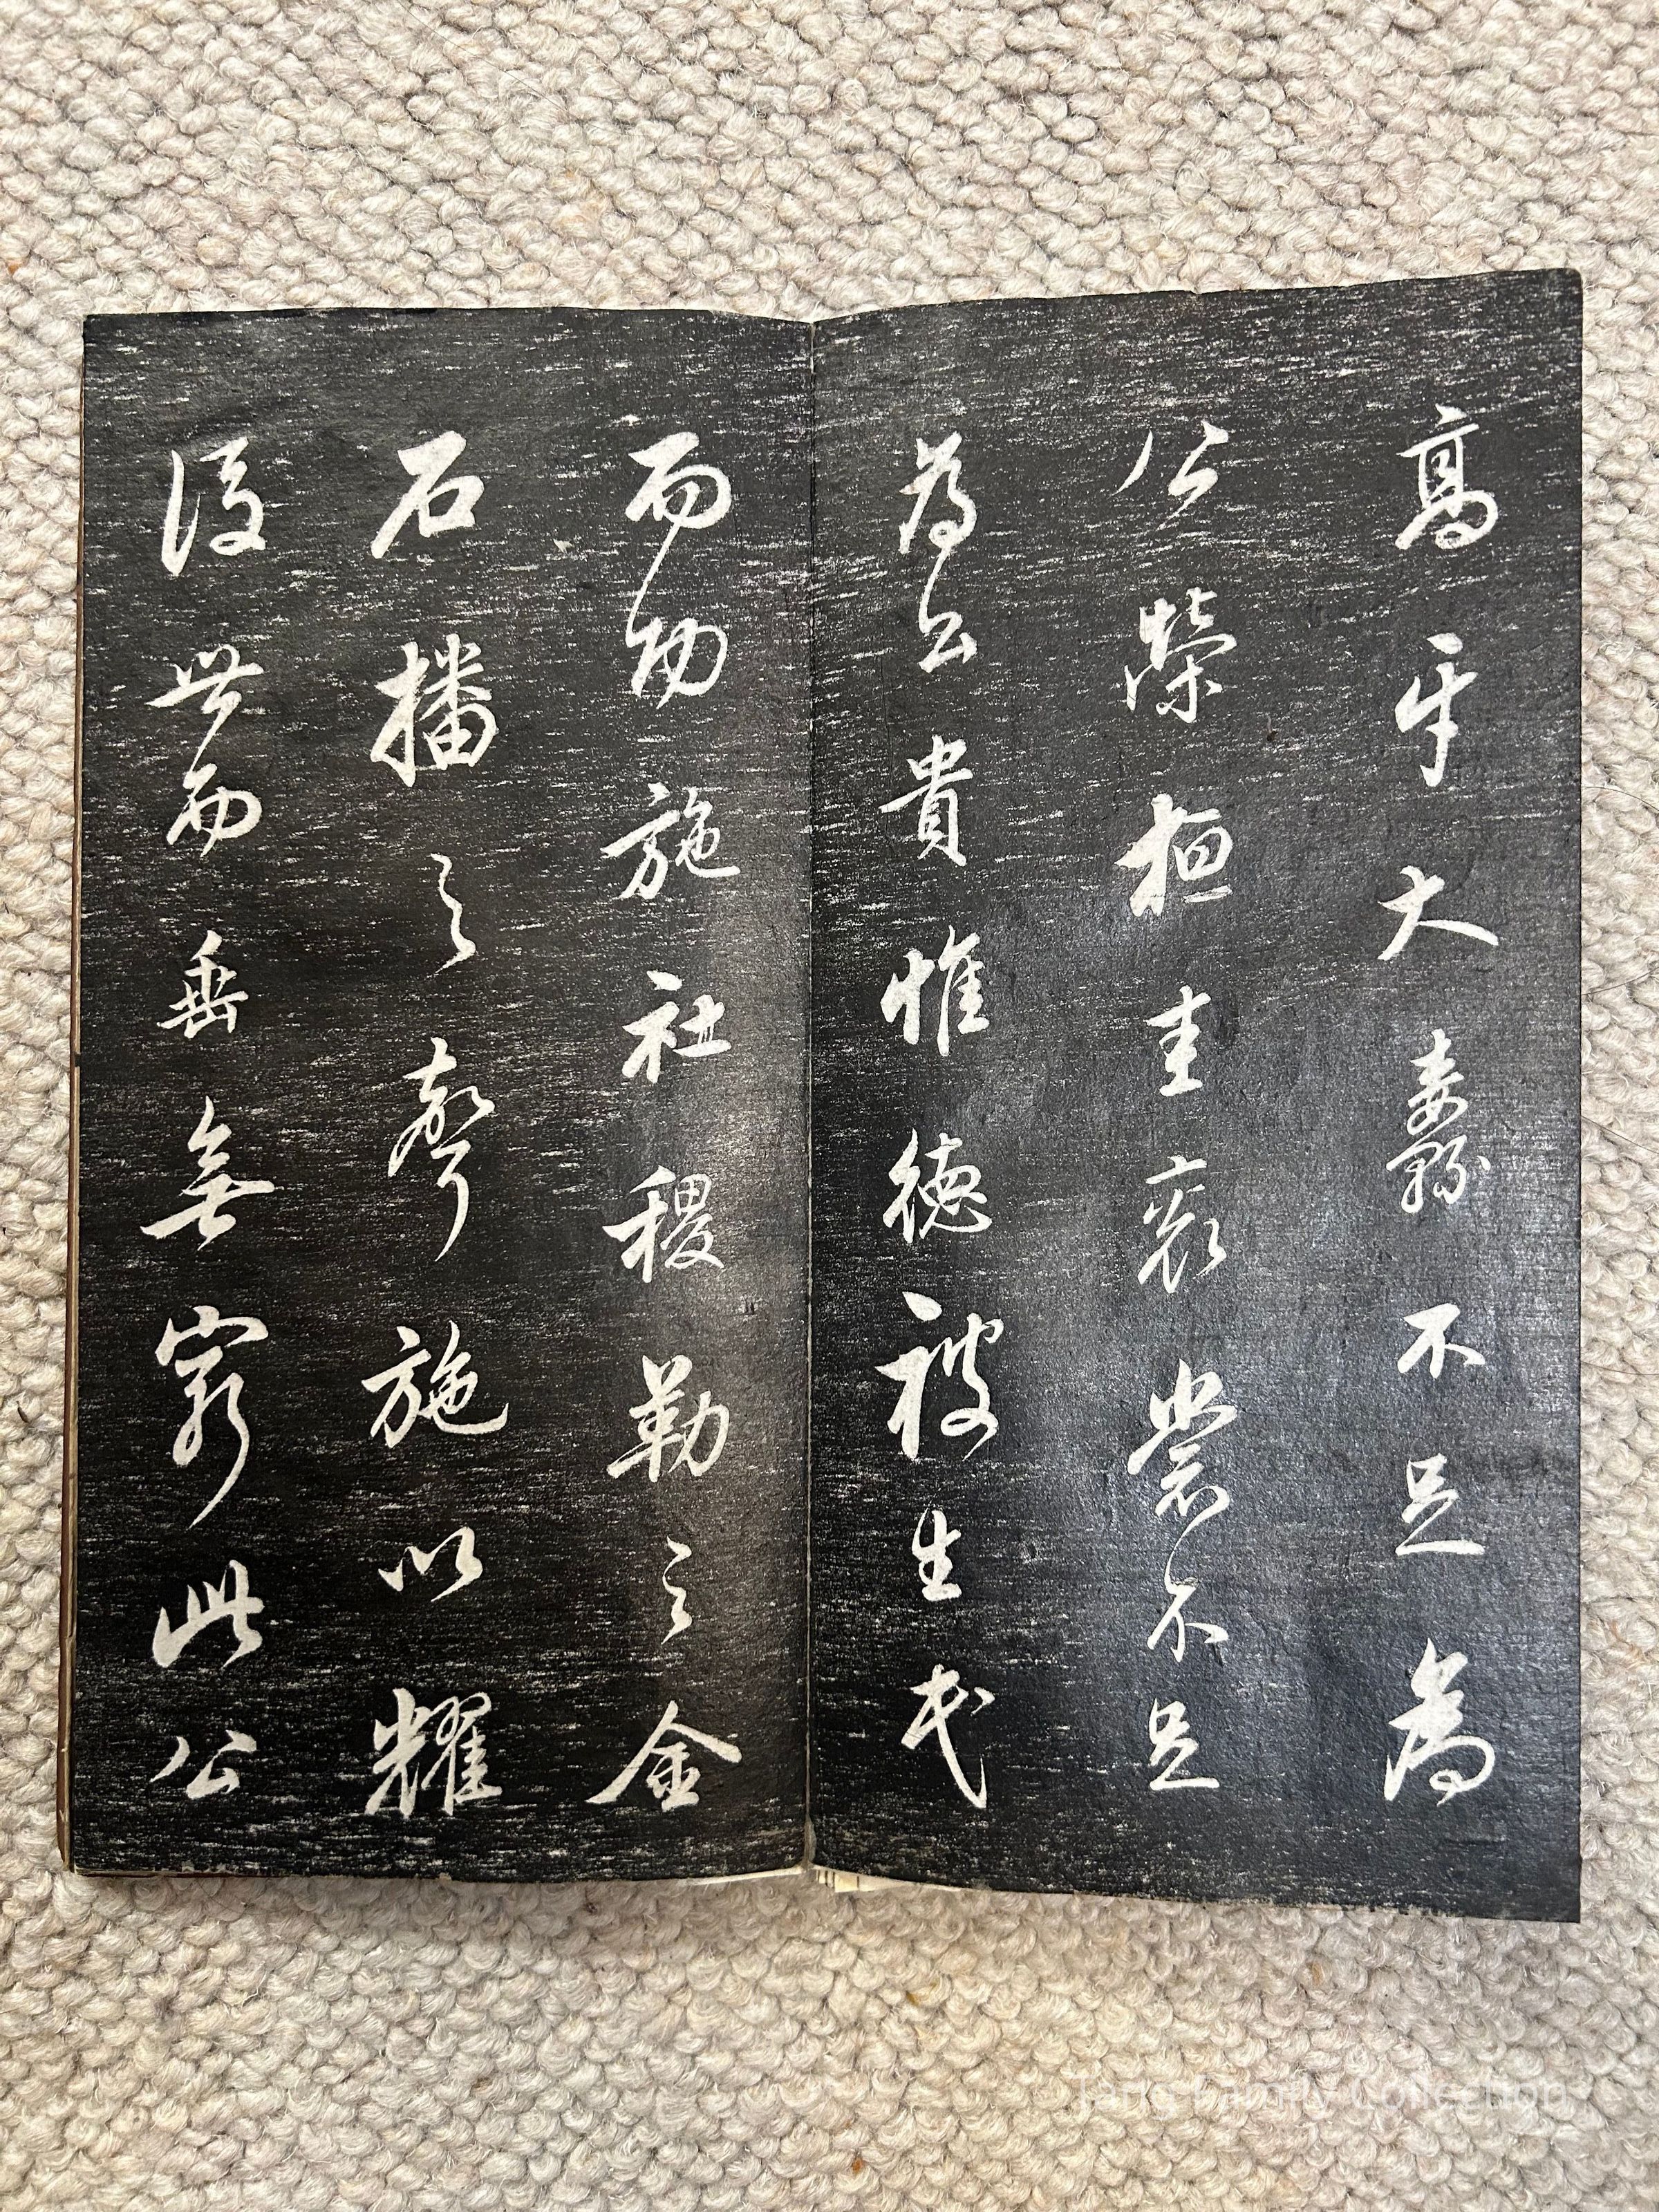 高牙大纛不足為
公榮桓圭衮裳不足
為公貴惟德被生民
而功施社稷勒之金
石播之聲施以耀
後世而垂無窮此公
Tang Family Collection